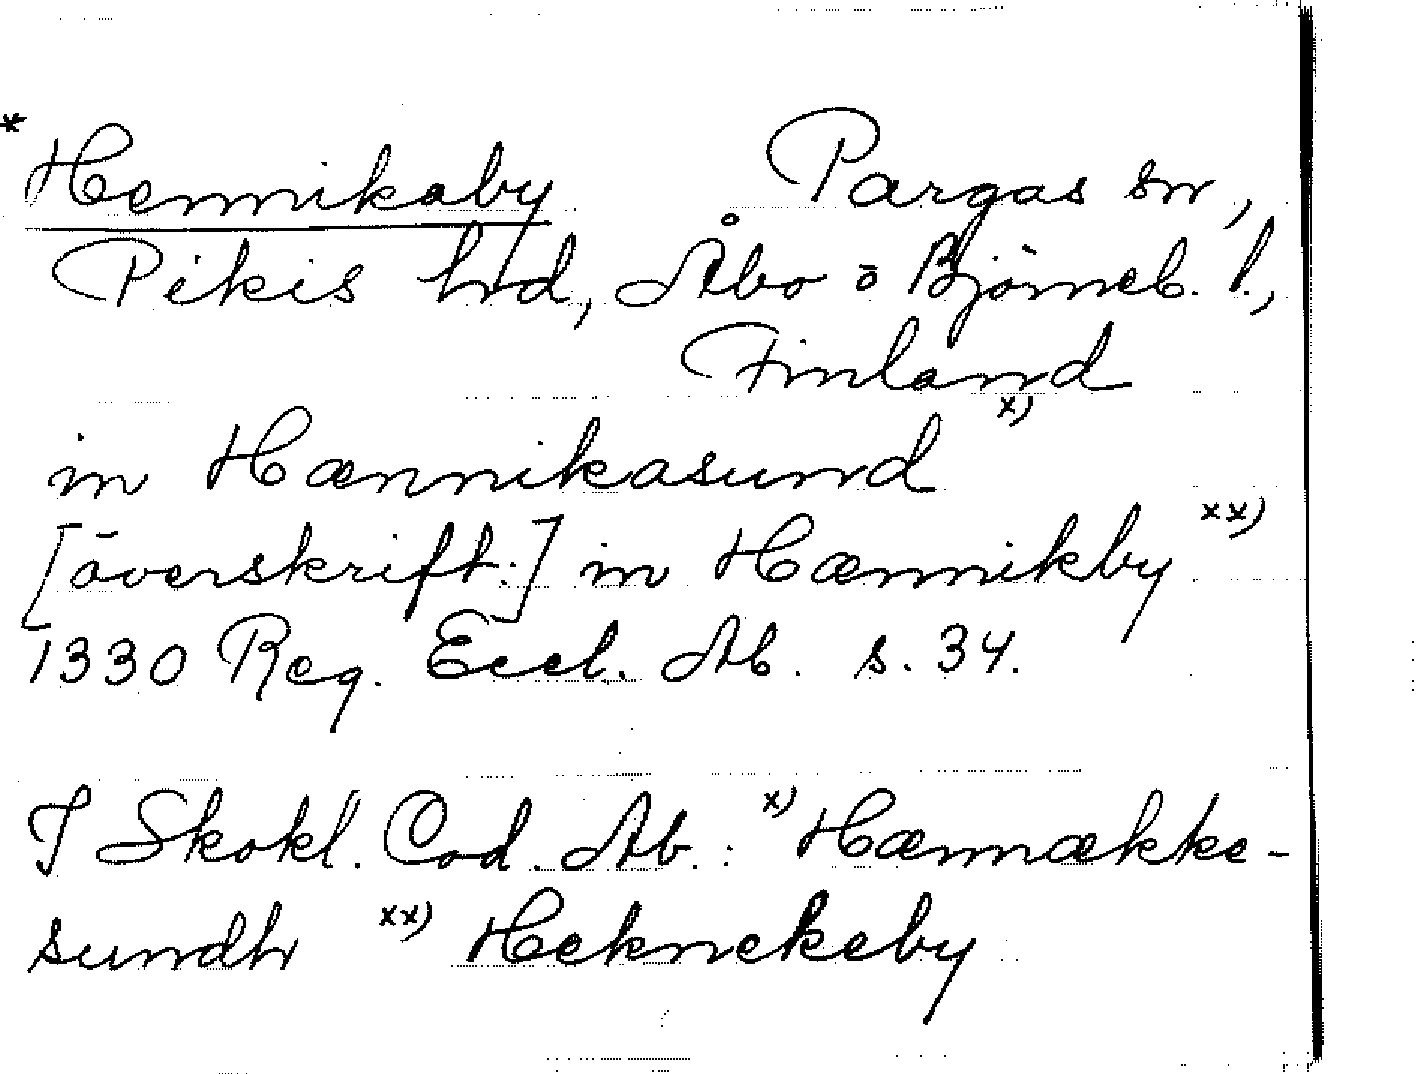 * Hennikaby Pargas sn,
Pikis hd, Åbo o Björneb. l.,
Finland
in Hænnikasund x)
[överskift:] in Hænnikby xx)
1330 Reg. Eccl. Ab. s. 34.
I Skokl. Cod. Ab.: x) Hænnække-
sundh xx) Heknekeby